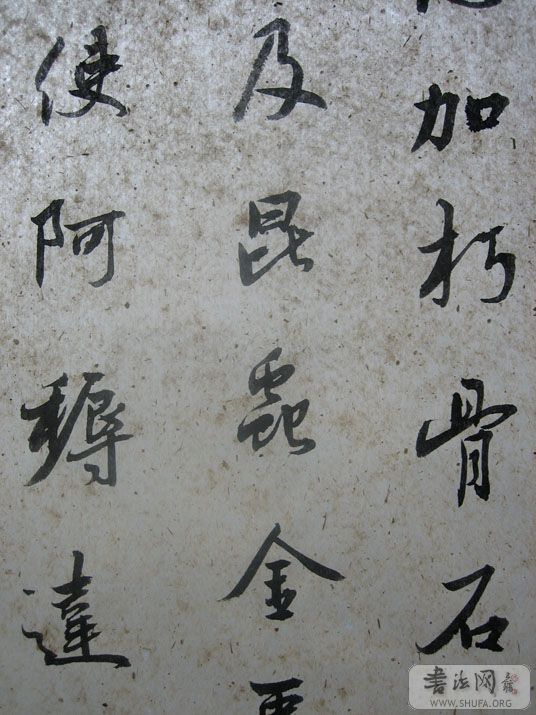 加朽骨石
及昆蟲金
使阿耨達
書法网
WWW.SHUFA.ORG